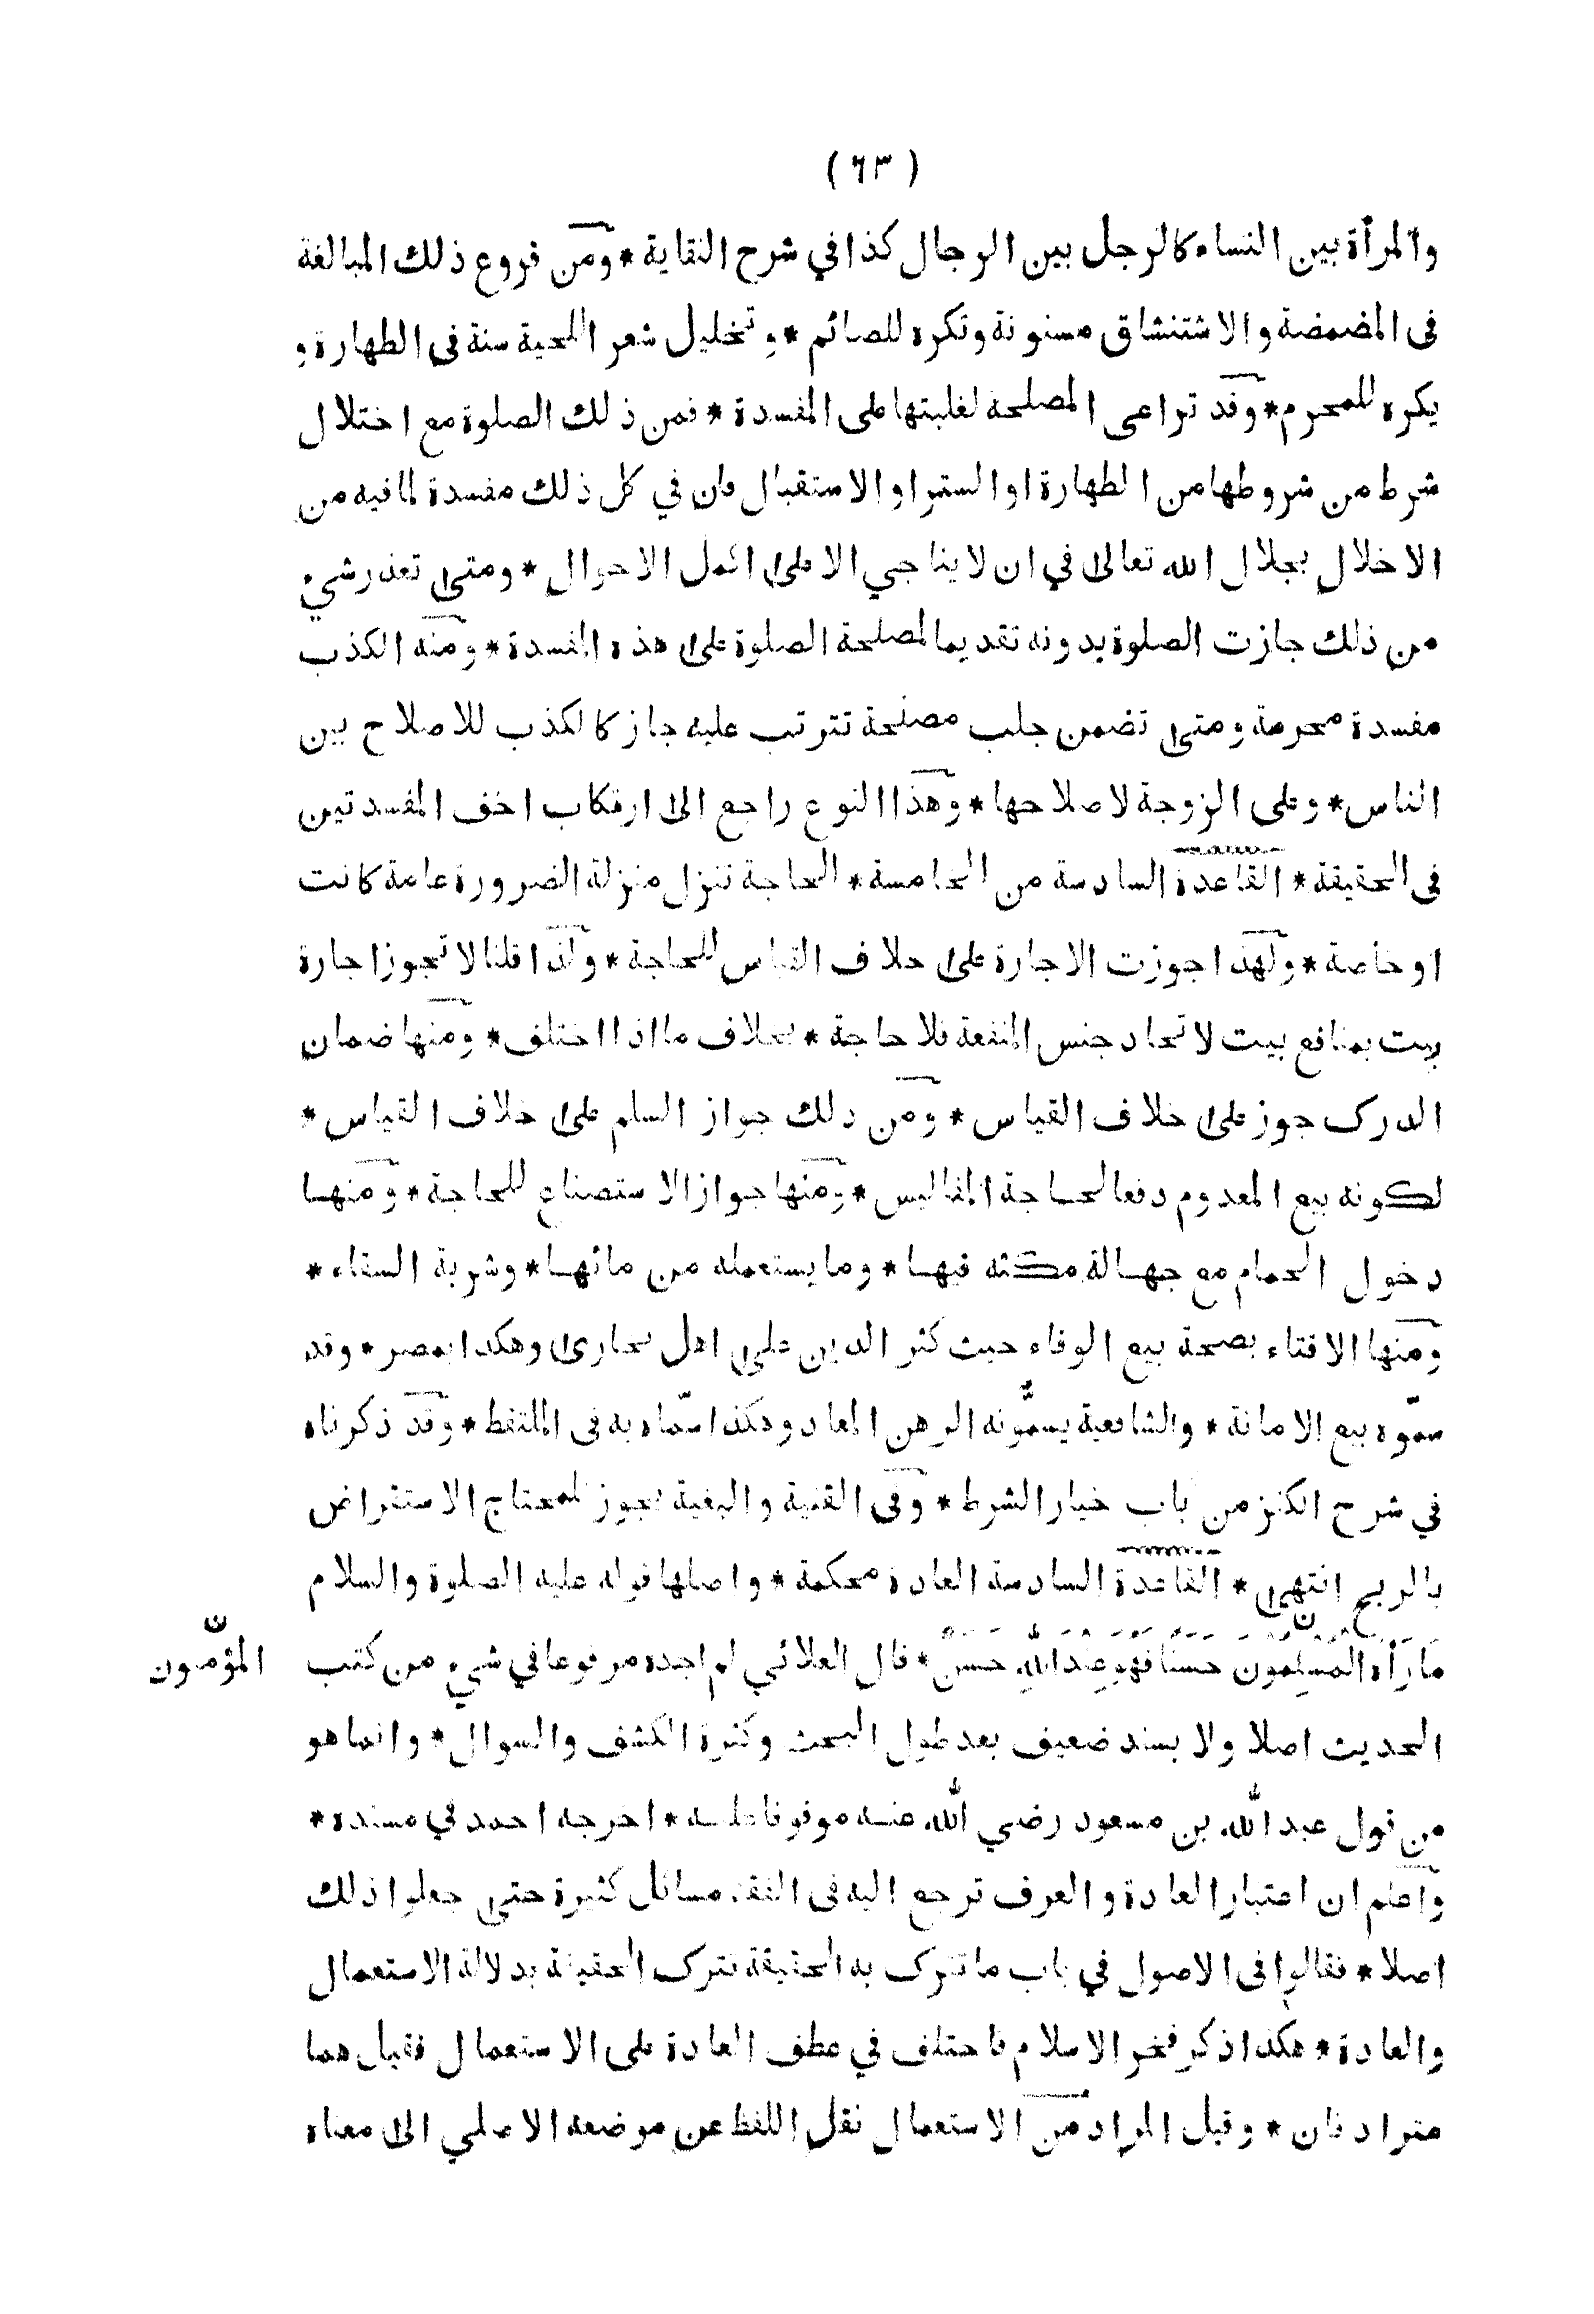 ( ٦٣ )
والمرأة بين النساء كالرجل بين الرجال كذا في شرح النقاية * ومن فروع ذلك المبالغة
فى المضمضة والاشتنشاق مسنونة وتكره للصائم * وتخليل شعر اللحية سنة فى الطهارة و
يكره للمحرم * وقد تراعى المصلحة لغلبتها على المفسدة * فمن ذلك الصلوة مع اختلال
شرط من شروطها من الطهارة او الستر او الاستقبال فان في كل ذلك مفسدة لما فيه من
الاخلال بجلال الله تعالى في ان لا يناجي الا على اكمل الاحوال * ومتى تعذر شيء
من ذلك جازت الصلوة بدونه تقديما لمصلحة الصلوة على هذه المفسدة * ومنه الكذب
مفسدة محرمة ومتى تضمن جلب مصلحة تترتب عليه جاز كالكذب للاصلاح بين
الناس * وعلى الزوجة لاصلاحها * وهذا النوع راجع الى ارتكاب اخف المفسدتين
فى الحقيقة * القاعدة السادسة من الخامسة * الحاجة تنزل منزلة الضرورة عامة كانت
او خاصة * ولهذا جوزت الاجارة على خلاف القياس للحاجة * ولذا قلنا لا تجوز اجارة
بيت بمنافع بيت لاتحاد جنس المنفعة فلا حاجة * بخلاف ما اذا اختلف * ومنها ضمان
الدرك جوز على خلاف القياس * ومن ذلك جواز السلم على خلاف القياس *
لكونه بيع المعدوم دفعا لحاجة المفاليس * ومنها جواز الاستصناع للحاجة * ومنها
دخول الحمام مع جهالة مكثه فيها * وما يستعمله من مائها * وشربة السقاء *
ومنها الافتاء بصحة بيع الوفاء حيث كثر الدين على اهل بخارى وهكذا بمصر * وقد
سمّوه بيع الامانة * والشافعية يسمّونه الرهن المعاد وهكذا سمّاه به فى الملتقط * وقد ذكرناه
في شرح الكنز من باب خيار الشرط * وفى القنية والبغية يجوز للمحتاج الاستقراض
بالربح انتهى * القاعدة السادسة العادة محكمة * واصلها قوله عليه الصلوة والسلام
مَا رَآهُ الْمُسْلِمُونَ حَسَنًا فَهُوَ عِنْدَ اللّٰهِ حَسَنٌ * قال العلائي لم اجده مرفوعا في شيء من كتب
المؤمنون ن
الحديث اصلا ولا بسند ضعيف بعد طول البحث وكثرة الكشف والسوال * وانما هو
من قول عبد الله بن مسعود رضي الله عنه موقوفا عليه * اخرجه احمد في مسنده *
واعلم ان اعتبار العادة والعرف ترجع اليه فى الفقه مسائل كثيرة حتى جعلوا ذلك
اصلا * فقالوا فى الاصول في باب ما تترك به الحقيقة تترك الحقيقة بدلالة الاستعمال
والعادة * هكذا ذكر فخر الاسلام فاختلف في عطف العادة على الاستعمال فقيل هما
مترادفان * وقيل المراد من الاستعمال نقل اللفظ عن موضعه الاصلي الى معناه